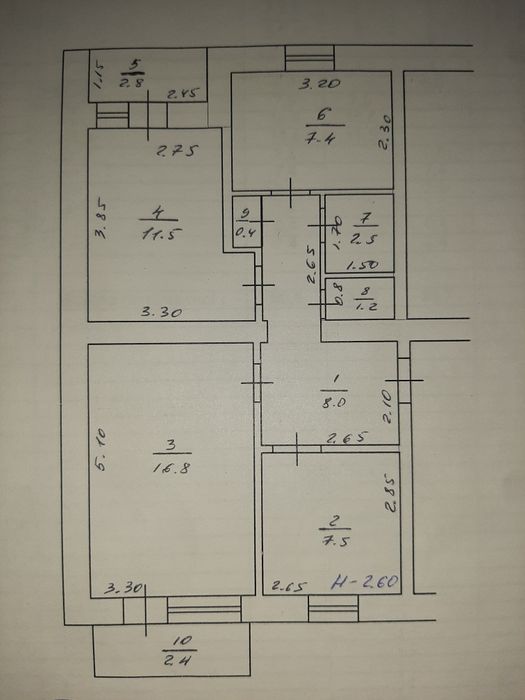 1.15
5
2.8
2.45
3.20
6
7.4
2.30
2.75
3.85
4
11.5
3.30
9
0.4
2.65
1.70
7
2.5
1.50
0.8
8
1.2
1
8.0
2.10
2.65
5.10
3
16.8
3.30
2.85
2
7.5
2.65
H-2.60
10
2.4